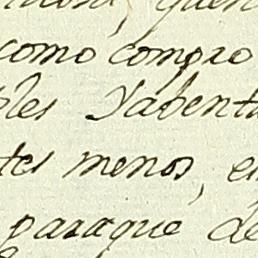 como compro
les Yabent
tes menos, e
paraque de